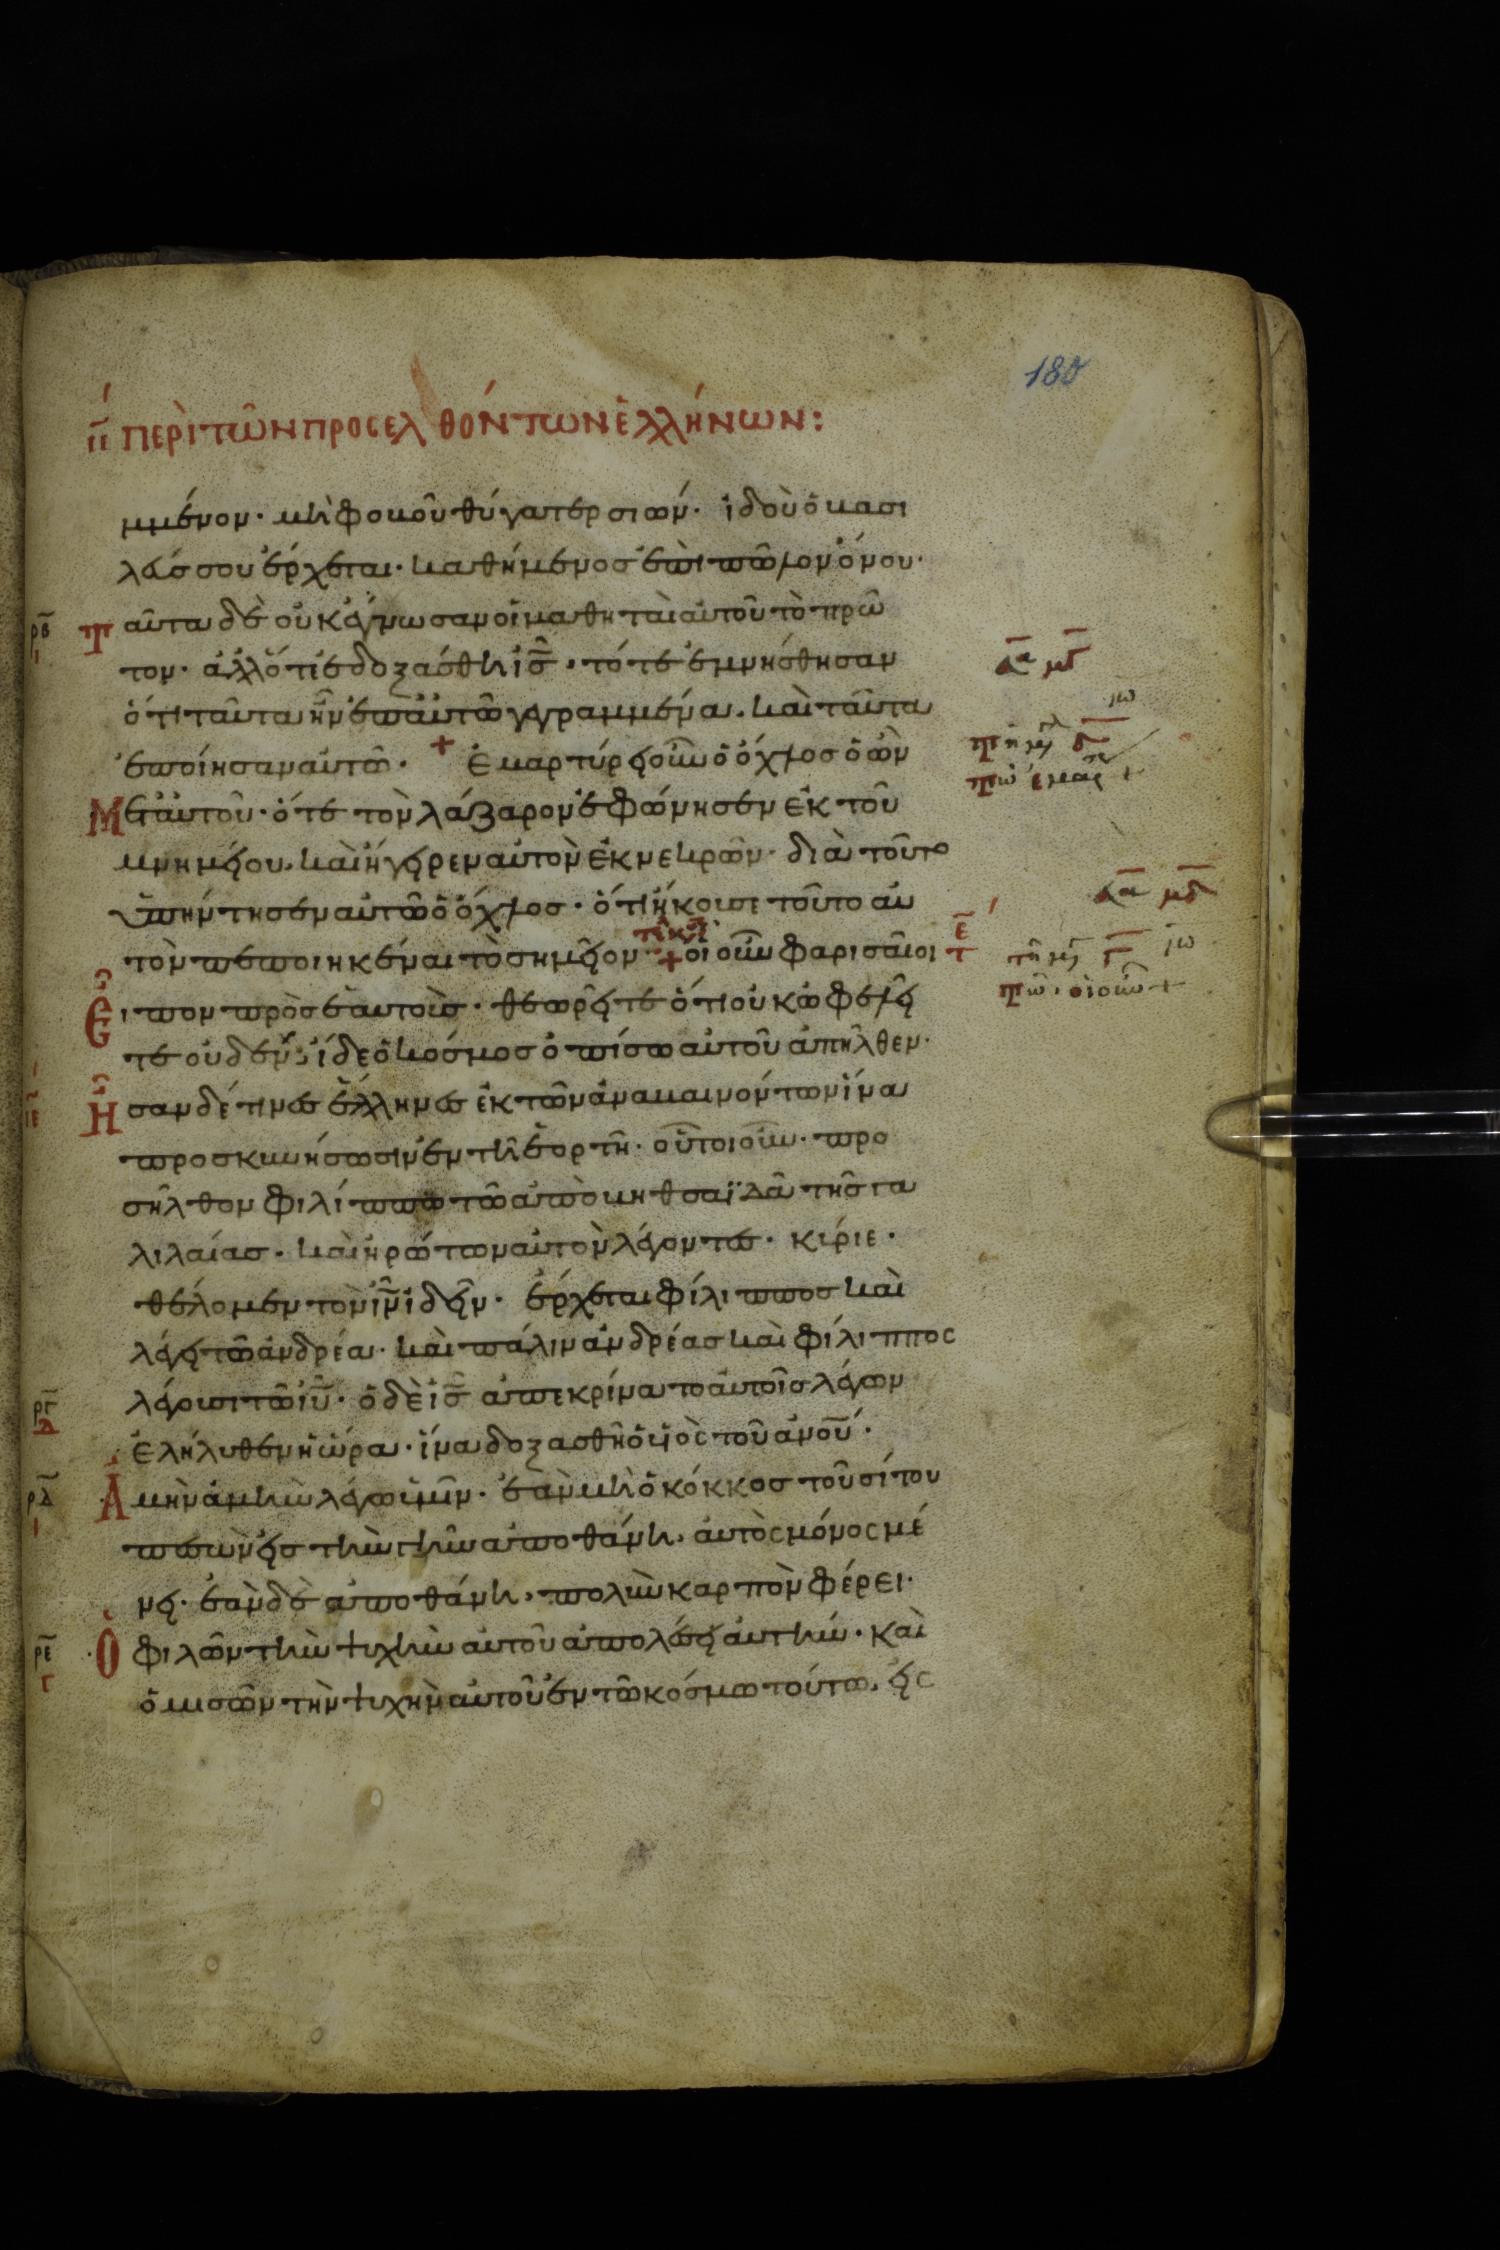 180
ιε περὶ τῶν προσελθόντων ἑλλήνων:
μμένον· μὴ φοβοῦ θύγατερ σιών· ἰδοὺ ὁ βασι
λεύς σου ἔρχεται· καθήμενος ἐπὶ πῶλον ὄνου·
ρβ Ταῦτα δὲ οὐκ ἔγνωσαν οἱ μαθηταὶ αὐτοῦ τὸ πρῶ
τον· ἀλλ' ὅτε ἐδοξάσθη ἰς̅· τότε ἐμνήσθησαν
ὅτι ταῦτα ἦν ἐπ' αὐτῶ γεγραμμένα· καὶ ταῦτα
ἐποίησαν αὐτῶ· + Ἐμαρτύρει οὖν ὁ ὄχλος ὁ ὢν
Μετ' αὐτοῦ· ὅτε τὸν λάζαρον ἐφώνησεν ἐκ τοῦ
μνημείου· καὶ ἤγειρεν αὐτὸν ἐκ νεκρῶν· διὰ τοῦτο
ὑπήντησεν αὐτῶ ὁ ὄχλος· ὅτι ἤκουσε τοῦτο αὐ
τὸν πεποιηκέναι τὸ σημεῖον· + οἱ οὖν φαρισαῖοι
Εἶπον πρὸς ἑαυτοὺς· θεωρεῖτε ὅτι οὐκ ὠφελεῖ
τε οὐδέν· ἴδε ὁ κόσμος ὀπίσω αὐτοῦ ἀπῆλθεν·
ιε Ἦσαν δέ τινες ἕλληνες ἐκ τῶν ἀναβαινόντων ἵνα
προσκυνήσωσιν ἐν τῆ ἑορτῆ· οὗτοι οὖν· προ
σῆλθον φιλίππω τῶ ἀπὸ βηθσαϊδὰ τῆς γα
λιλαίας· καὶ ἠρώτων αὐτὸν λέγοντες· κύριε·
θέλομεν τὸν ἰν̅ ἰδεῖν· ἔρχεται φίλιππος καὶ
λέγει τῶ ἀνδρέα· καὶ πάλιν ἀνδρέας καὶ φίλιππος
ργ λέγουσι τῶ ἰυ̅· ὁ δὲ ἰς̅ ἀπεκρίνατο αὐτοῖς λέγων
Ἐλήλυθεν ἡ ὥρα· ἵνα δοξασθῆ ὁ υἱὸς τοῦ ἀνου̅·
ρδ Ἀμὴν ἀμὴν λέγω ὑμῖν· ἐὰν μὴ ὁ κόκκος τοῦ σίτου
πεσὼν εἰς τὴν γῆν ἀποθάνη· αὐτὸς μόνος μέ
νει· ἐὰν δὲ ἀποθάνη· πολὺν καρπὸν φέρει·
ρε Ὁ φιλῶν τὴν ψυχὴν αὐτοῦ ἀπολέσει αὐτήν· καὶ
ὁ μισῶν τὴν ψυχὴν αὐτοῦ ἐν τῶ κόσμω τούτω· εἰς